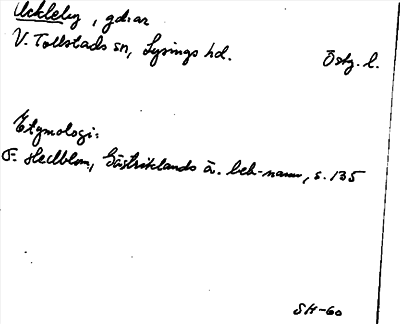 Äckleby, gdar
V. Tollstads sn, Lysings hd. Östg. l.
Etymologi:
F. Hedblom, Gästriklands ä. beb-namn, s. 135
SH-60